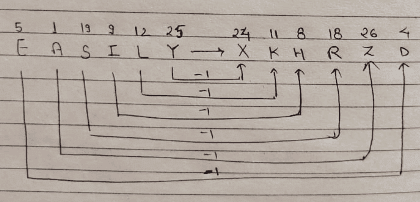 5 1 19 9 12 25 24 11 8 18 26 4
E A S I L Y → X K H R Z D
-1
-1
-1
-1
-1
-1